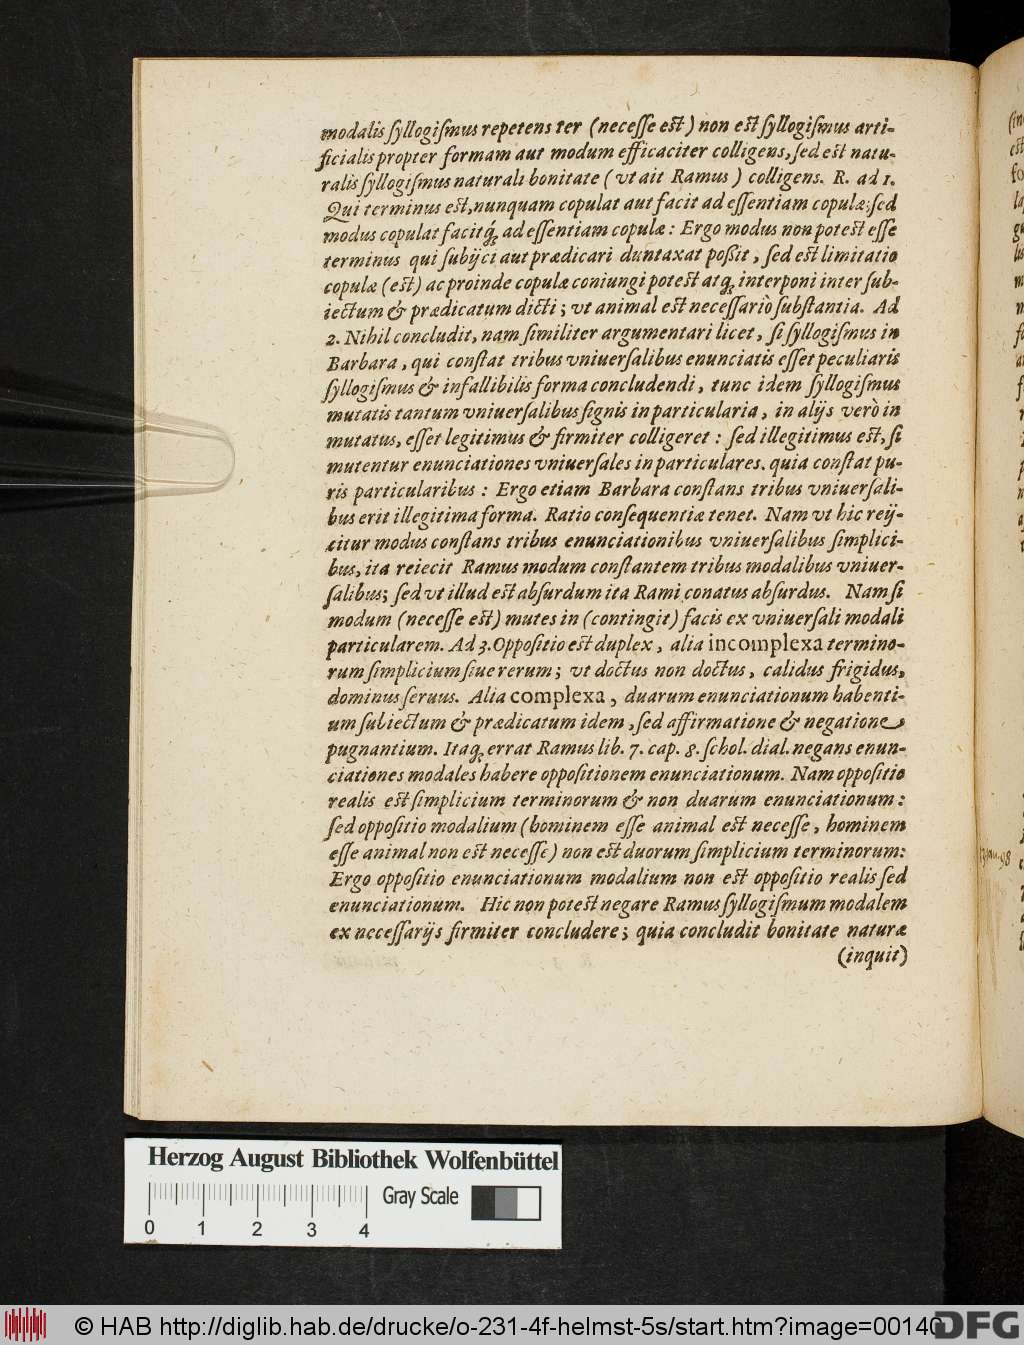 modalis syllogiſmus repetens ter (neceſſe est) non est ſyllogiſmus arti-
ficialis propter formam aut modum efficaciter colligens, ſed est natu-
ralis ſyllogiſmus naturali bonitate (vt ait Ramus) colligens. R. ad 1.
Qui terminus est, nunquam copulat aut facit ad eſſentiam copulæ; ſed
modus copulat facitq́; ad eſſentiam copulæ: Ergo modus non potest eſſe
terminus qui ſubijci aut prædicari duntaxat poßit, ſed est limitatio
copulæ (est) ac proinde copulæ coniungi potest atq; interponi inter ſub-
iectum & prædicatum dicti; vt animal est neceſſariò ſubſtantia. Ad
2. Nihil concludit, nam ſimiliter argumentari licet, ſi ſyllogiſmus in
Barbara, qui conſtat tribus vniuerſalibus enunciatis eſſet peculiaris
ſyllogiſmus & infallibilis forma concludendi, tunc idem ſyllogiſmus
mutatis tantum vniuerſalibus ſignis in particularia, in alijs verò in
mutatus, eſſet legitimus & firmiter colligeret: ſed illegitimus est, ſi
mutentur enunciationes vniuerſales in particulares. quia conſtat pu-
ris particularibus: Ergo etiam Barbara conſtans tribus vniuerſali-
bus erit illegitima forma. Ratio conſequentiæ tenet. Nam vt hic reij-
citur modus conſtans tribus enunciationibus vniuerſalibus ſimplici-
bus, ita reiecit Ramus modum conſtantem tribus modalibus vniuer-
ſalibus; ſed vt illud est abſurdum ita Rami conatus abſurdus. Nam ſi
modum (neceſſe est) mutes in (contingit) facis ex vniuerſali modali
particularem. Ad 3. Oppoſitio est duplex, alia incomplexa termino-
rum ſimplicium ſiue rerum; vt doctus non doctus, calidus frigidus,
dominus ſeruus. Alia complexa, duarum enunciationum habenti-
um ſubiectum & prædicatum idem, ſed affirmatione & negatione
pugnantium. Itaq; errat Ramus lib. 7. cap. 8. ſchol. dial. negans enun-
ciationes modales habere oppoſitionem enunciationum. Nam oppoſitio
realis est ſimplicium terminorum & non duarum enunciationum:
ſed oppoſitio modalium (hominem eſſe animal est neceſſe, hominem
eſſe animal non est neceſſe) non est duorum ſimplicium terminorum:
Ergo oppoſitio enunciationum modalium non est oppoſitio realis ſed
enunciationum. Hic non potest negare Ramus ſyllogiſmum modalem
ex neceſſarijs firmiter concludere; quia concludit bonitate naturæ
(inquit)
Herzog August Bibliothek Wolfenbüttel
Gray Scale
0 1 2 3 4
© HAB http://diglib.hab.de/drucke/o-231-4f-helmst-5s/start.htm?image=00140
DFG